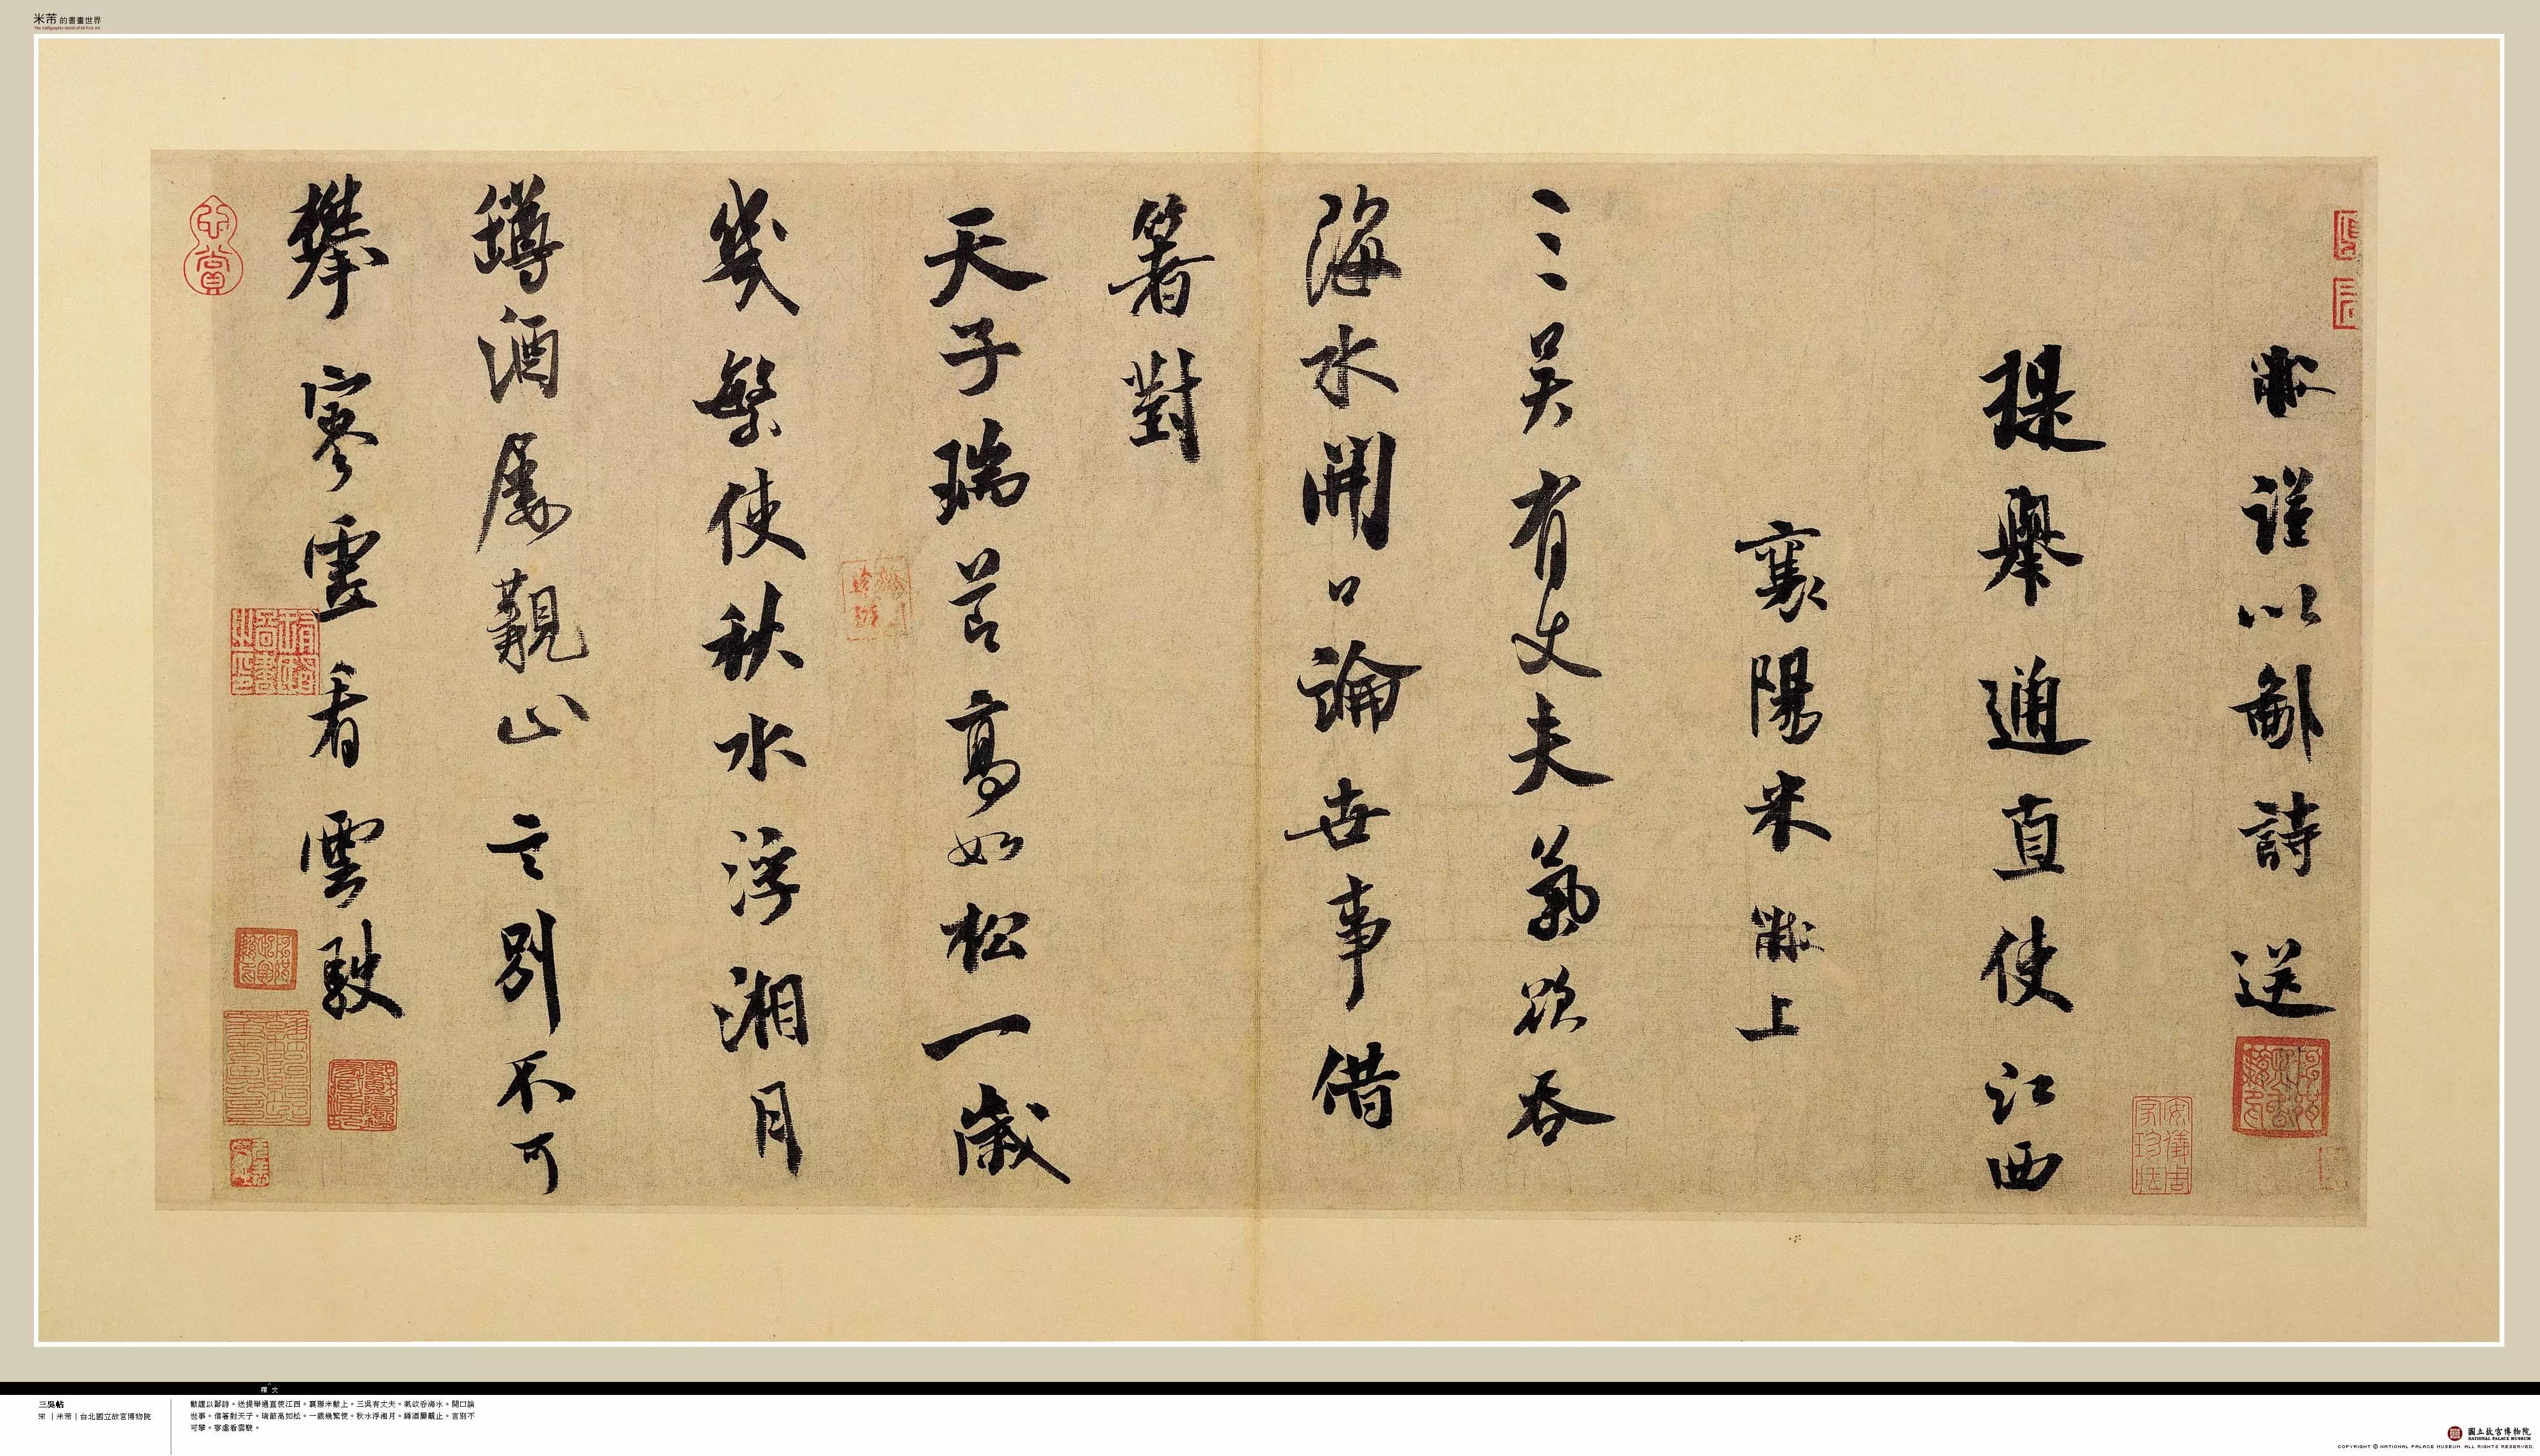 米芾的書畫世界
黻謹以鄙詩送
提舉通直使江西
襄陽米黻上
三吳有丈夫氣欲吞
海水開口論世事借
箸對
天子瑞節高如松一歲
幾繁使秋水浮湘月
罇酒屢覯止言別不可
攀寥虛看雲駛
安儀周
家珍藏
釋文
三吳帖
宋｜米芾｜台北國立故宮博物院
黻謹以鄙詩。送提舉通直使江西。襄陽米黻上。三吳有丈夫。氣欲吞海水。開口論
世事。借箸對天子。瑞節高如松。一歲幾繁使。秋水浮湘月。罇酒屢覯止。言別不
可攀。寥虛看雲駛。
國立故宮博物院
NATIONAL PALACE MUSEUM
COPYRIGHT © NATIONAL PALACE MUSEUM. ALL RIGHTS RESERVED.